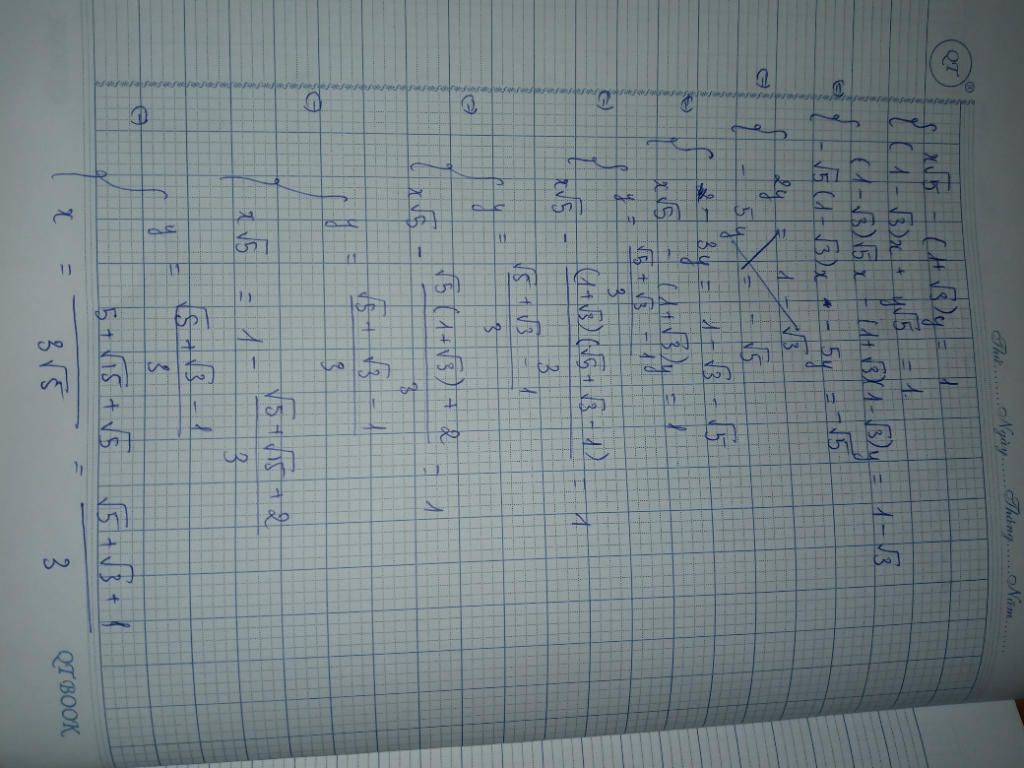 Thứ........ Ngày........ Tháng........ Năm........
QT
x√5 - (1+√3)y = 1
(1-√3)x + y√5 = 1
⇔ (1-√3)√5x - (1+√3)(1-√3)y = 1-√3
-√5(1-√3)x - 5y = -√5
⇔ 2y = 1-√3
- 5y = -√5
⇔ -3y = 1-√3-√5
x√5 - (1+√3)y = 1
⇔ y = √5+√3-1 / 3
x√5 - (1+√3)(√5+√3-1) / 3 = 1
⇔ y = √5+√3-1 / 3
x√5 - √5(1+√3)+2 / 3 = 1
⇔ y = √5+√3-1 / 3
x√5 = 1 - √5+√15+2 / 3
⇔ y = √5+√3-1 / 3
x = 5+√15+√5 / 3√5 = √5+√3+1 / 3
QTBOOK